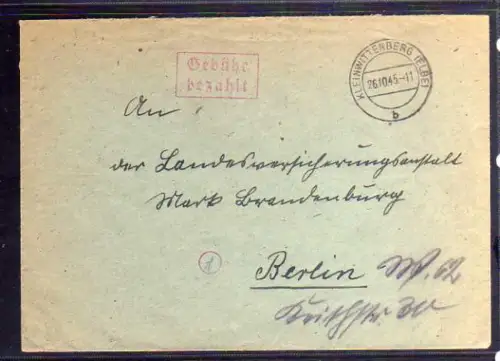 Gebühr
bezahlt
KLEINWITTENBERG (ELBE)
26.10.45.-11
b
An
der Landesversicherungsanstalt
Mark Brandenburg
Berlin W. 62
Keithstr. 30